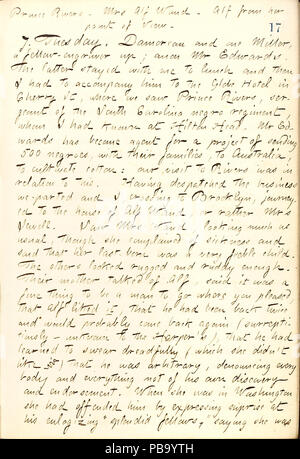 Prince Rivers. Mrs Alf Waud. Alf from her
point of View.
17
7. Tuesday. Damoreau and one Miller,
fellow-engraver up; anon Mr Edwards.
The latter stayed with me to lunch and then
I had to accompany him to the Globe Hotel in
Cherry St, where we saw Prince Rivers, ser-
geant of the South Carolina negro regiment
whom I had known at Hilton Head. Mr Ed-
wards has become agent for a project of sending
500 negroes, with their families, to Australia,
to cultivate cotton: our visit to Rivers was in
relation to this. Having despatched the business
we parted and I crossing to Brooklyn, journey-
ed to the house of Alf Waud, or rather Mrs
Jewell. Saw Mrs Waud, looking much as
usual, though she complained of sickness and
said that her last born was a very feeble child.
The others looked rugged and ruddy enough.
Their mother talked of Alf, said it was a
fine thing to be a man to go where you pleased
that Alf liked it, that he had been back twice
and would probably come back again (surrepti-
tiously - unknown to the Harpers), that he had
learned to swear dreadfully (which she didn't
like) that he was arbitrary, denouncing every
body and everything not of his own discovery
and endorsement. When she was in Washington
she had offended him by expressing surprise at
his eulogizing "splendid fellows," saying she was
alamy
Image ID: PB99YTH
www.alamy.com